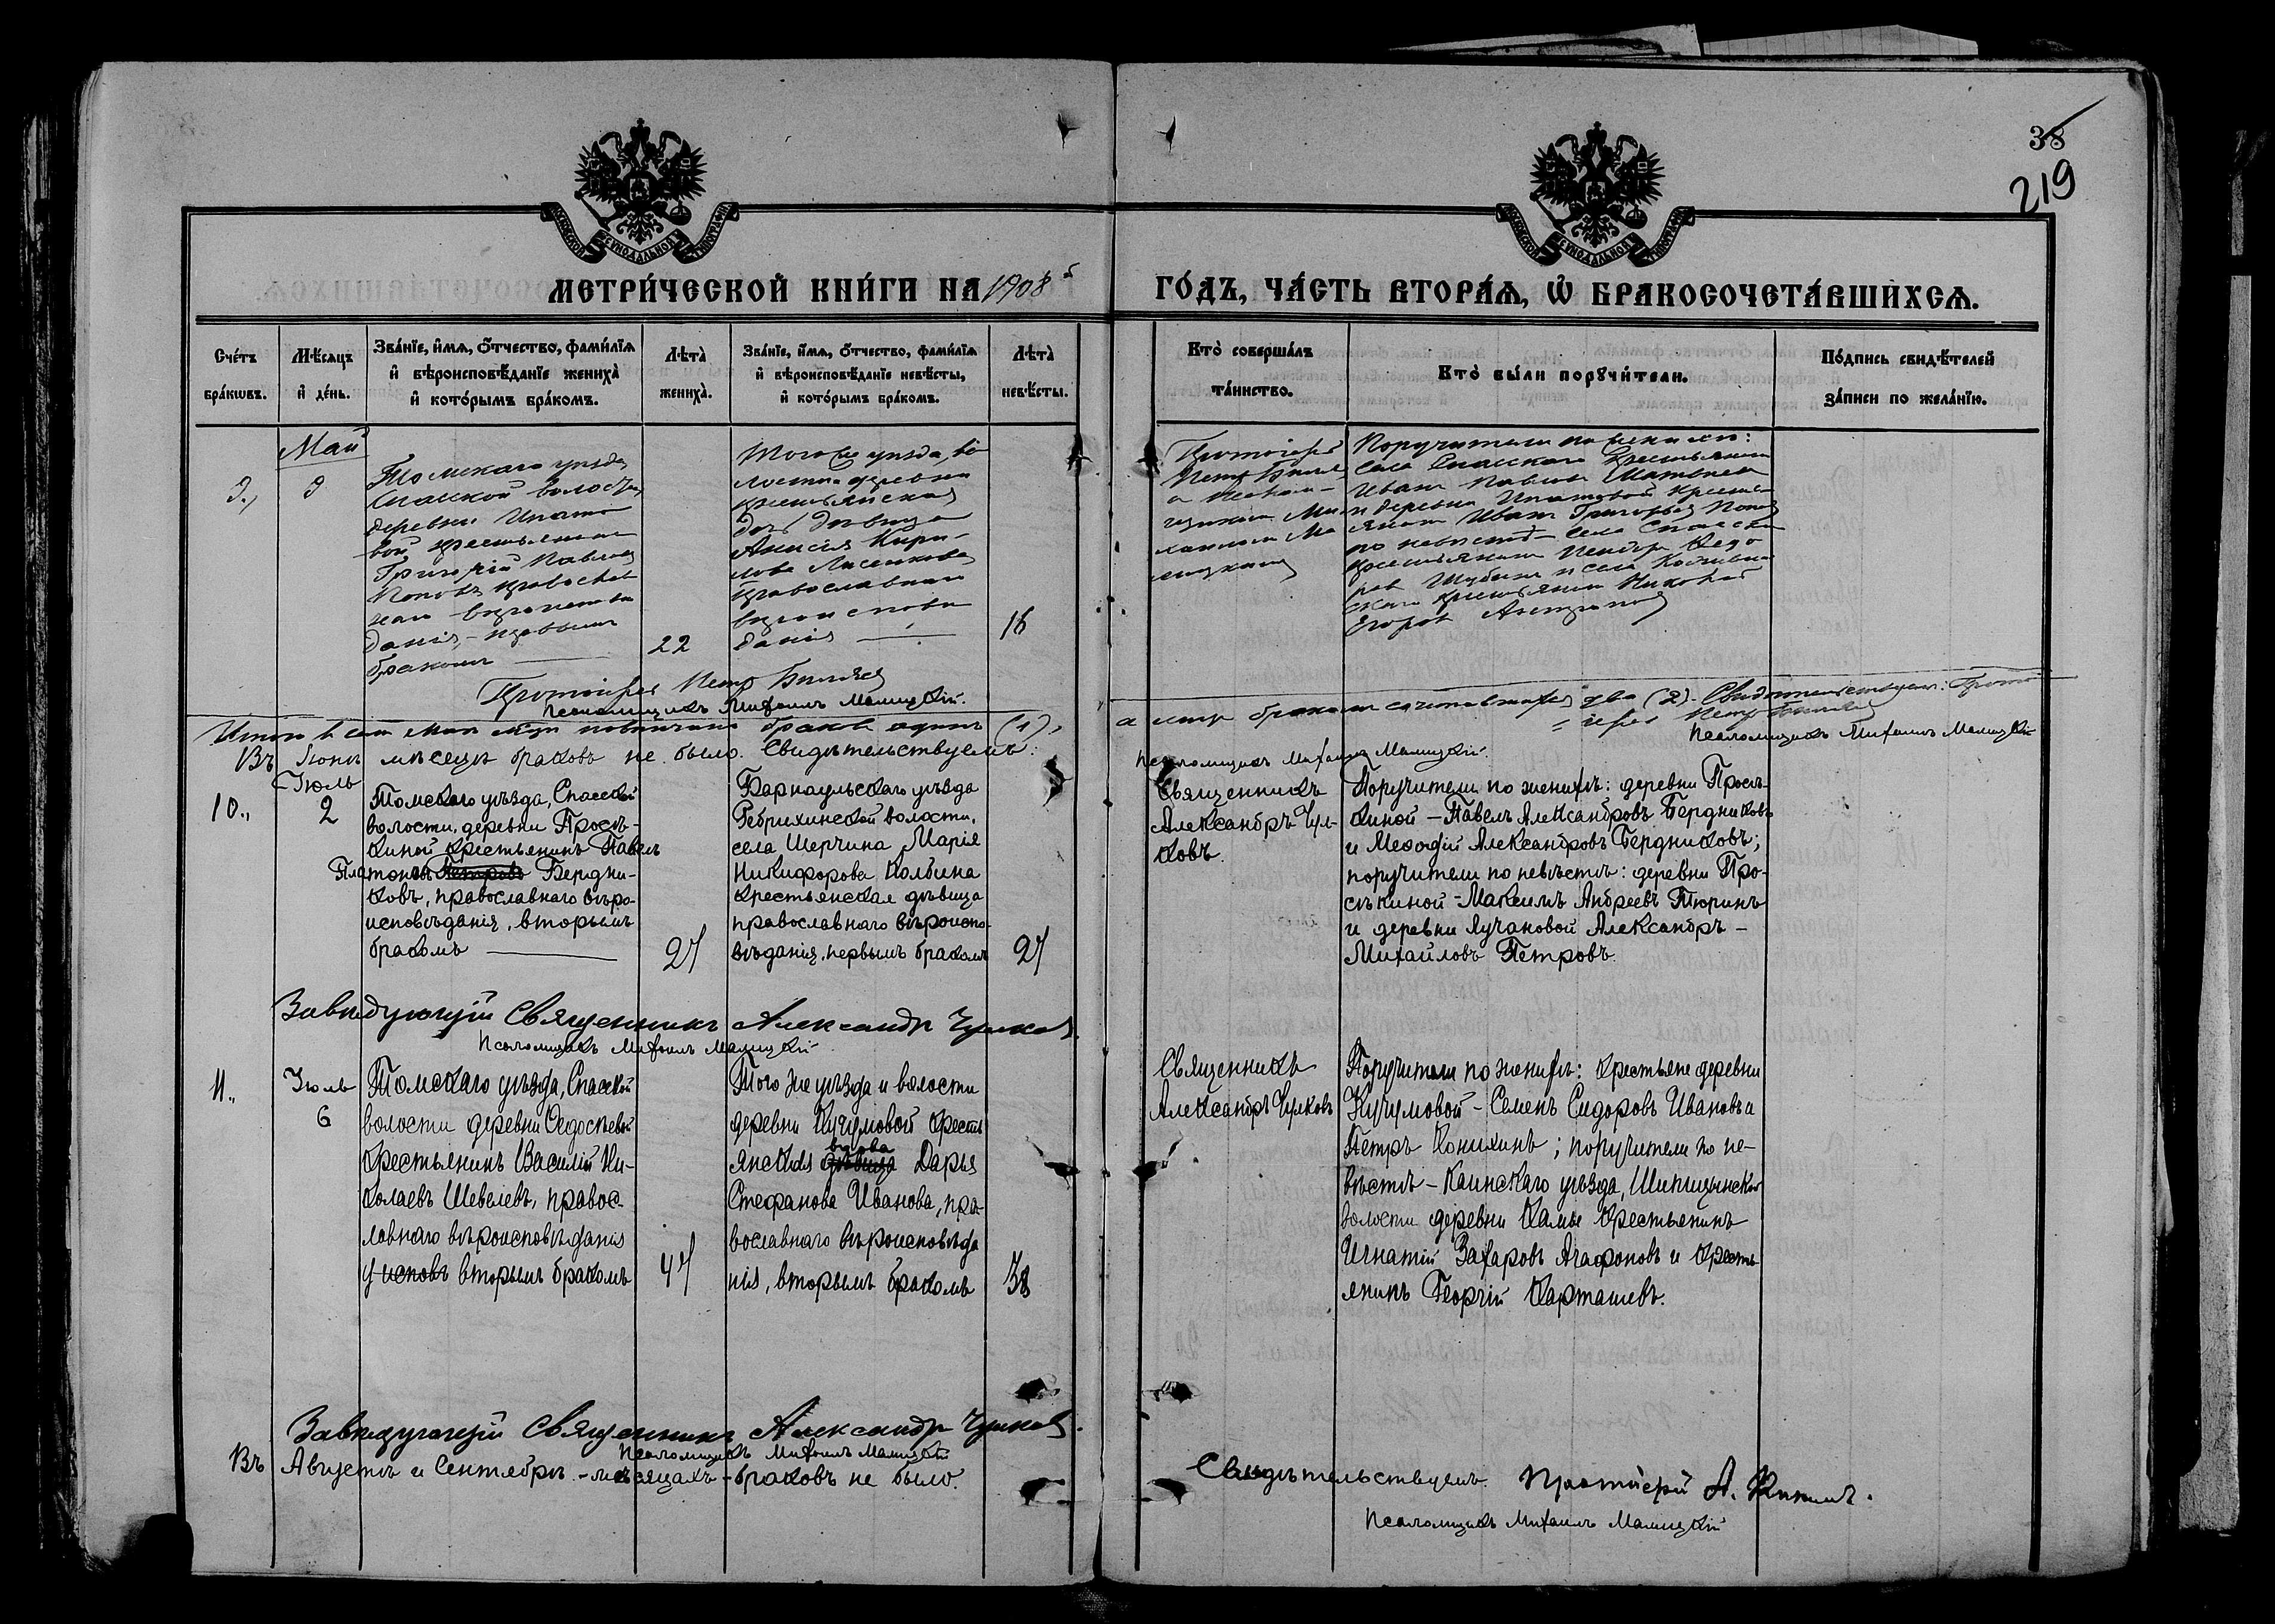 38
219
МЕТРИ́ЧЕСКОЙ КНИ́ГИ НА 1908 ГО́ДЪ, ЧА́СТЬ ВТОРА́Ѧ, Ѽ БРАКОСОЧЕТА́ВШИХСѦ.
Сче́тъ бра́кѡвъ.
Мѣ́сѧцъ и҆ де́нь.
Зва́нїе, и҆́мѧ, ѻ҆́тчество, фами́лїѧ
и҆ вѣроисповѣ́данїе жениха̀
и҆ кото́рымъ бра́комъ.
Лѣта̀ жениха̀.
Зва́нїе, и҆́мѧ, ѻ҆́тчество, фами́лїѧ
и҆ вѣроисповѣ́данїе невѣ́сты,
и҆ кото́рымъ бра́комъ.
Лѣта̀ невѣ́сты.
Кто̀ соверша́лъ
та́инство.
Кто̀ бы́ли порꙋчи́тели.
По́дпись свидѣ́телей
за́писи по жела́нїю.
Май
9., 9
Томскаго уѣзда
Спасской волости
деревни Ипато
вой крестьянинъ
Григорій Павловъ
Поповъ православ
наго вѣроисповѣ
данія, первымъ
бракомъ
22
Того же уѣзда, во
лости и деревни
крестьянская
дочь дѣвица
Анисія Кири-
лова Лисенкова
православнаго
вѣроисповѣ
данія
16
Протоіерей
Петръ
Поручители по женихѣ:
села Спасскаго крестьянинъ
Иванъ Павловъ
и деревни Ипатовой кресть
янинъ Иванъ Григорьевъ Поповъ
по невѣстѣ села Спасска
крестьянинъ Ѳедо
ровъ Шубинъ и села
крестьянинъ Николай
Егоровъ
Протоіерей Петръ
Псаломщикъ Михаилъ Малицкій.
Итого въ семъ Маѣ м-цѣ повѣнчано браковъ одинъ (1),
а лицъ бракомъ сочетавшихся два (2). Свидѣтельствуемъ: Прото
іерей Петръ
Псаломщикъ Михаилъ Малицкій
Въ Іюнѣ мѣсяцѣ браковъ не было. Свидѣтельствуемъ:
Псаломщикъ Михаилъ Малицкій.
Іюль
10., 2
Томскаго уѣзда, Спасской
волости, деревни Просѣ-
киной крестьянинъ Павелъ
Платоновъ Петровъ Бердни-
ковъ, православнаго вѣро-
исповѣданія, вторымъ
бракомъ
27
Барнаульскаго уѣзда
Ребрихинской волости,
села Шерчина Марія
Никифорова Колбина
крестьянская дѣвица
православнаго вѣроиспо-
вѣданія, первымъ бракомъ
27
Священникъ
Александръ Чул-
ковъ.
Поручители по женихѣ: деревни Просѣ-
киной – Павелъ Александровъ Бердниковъ
и Меѳодій Александровъ Бердниковъ;
поручители по невѣстѣ: деревни Про-
сѣкиной – Максимъ Андреевъ Тюринъ
и деревни Лучановой Александръ –
Михайловъ Петровъ.
Завѣдующій Священникъ Александръ Чулковъ.
Псаломщикъ Михаилъ Малицкій
11., Іюль
6
Томскаго уѣзда, Спасской
волости деревни Ѳедосѣевой
крестьянинъ Василій Ни-
колаевъ Шевелевъ, правос-
лавнаго вѣроисповѣданія
у исповъ вторымъ бракомъ
47
Того же уѣзда и волости
деревни Кучумовой кресть
янская дѣвица вдова Дарья
Стефанова Иванова, пра-
вославнаго вѣроисповѣда
нія, вторымъ бракомъ
38
Священникъ
Александръ Чулковъ
Поручители по женихѣ: крестьяне деревни
Кучумовой – Семенъ Сидоровъ Ивановъ и
Петръ Конихинъ; поручители по не-
вѣстѣ – Каинскаго уѣзда, Шипицынской
волости деревни Камы крестьянинъ
Игнатій Захаровъ Агафоновъ и кресть
янинъ Георгій Карташевъ.
Завѣдующій Священникъ Александръ Чулковъ.
Псаломщикъ Михаилъ Малицкій
Въ Августѣ и Сентябрѣ – мѣсяцахъ – браковъ не было.
Свидѣтельствуемъ. Протоіерей А.
Псаломщикъ Михаилъ Малицкій